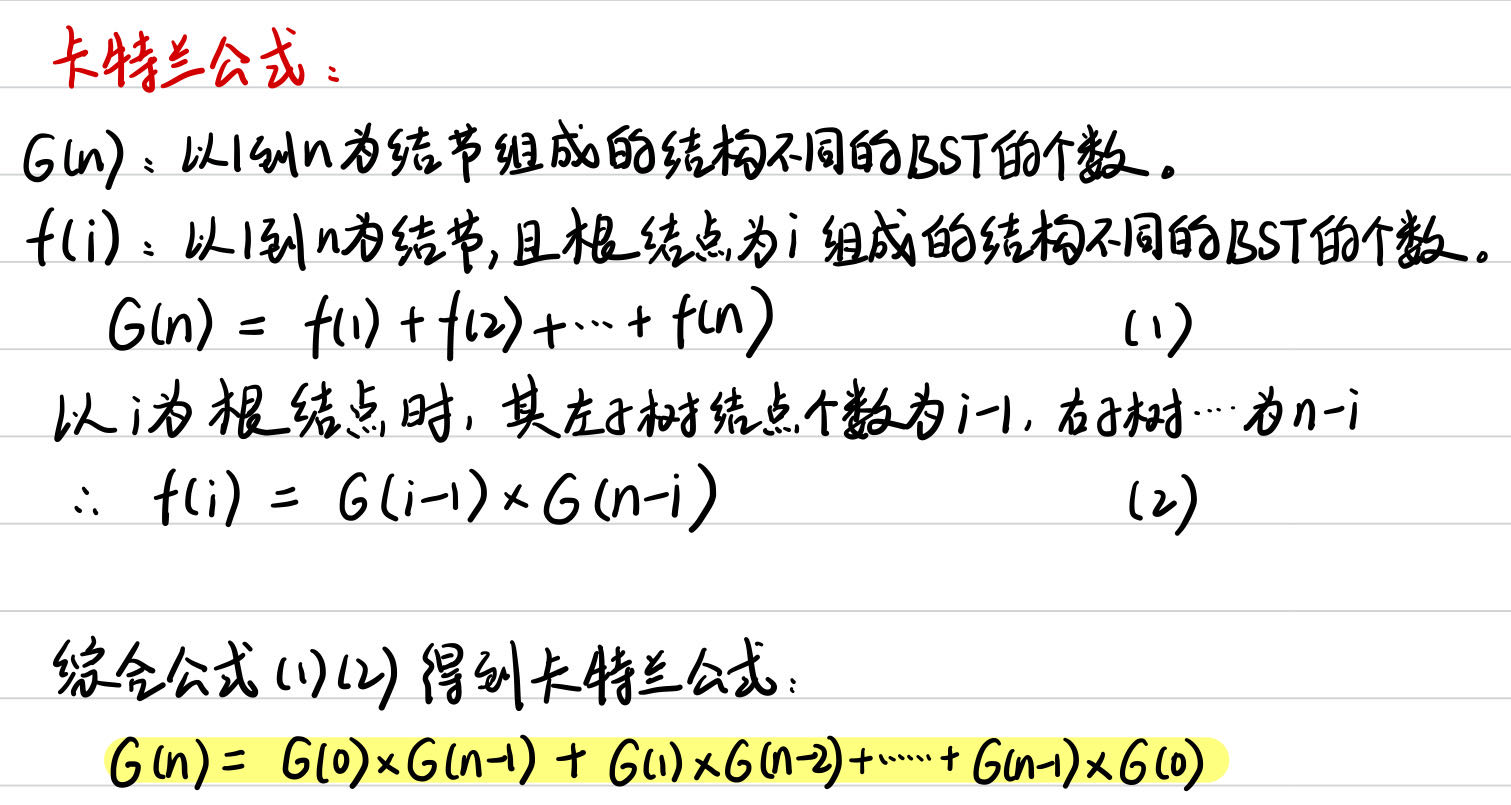 卡特兰公式：
G(n)：以1到n为结节组成的结构不同的BST的个数。
f(i)：以1到n为结节,且根结点为i组成的结构不同的BST的个数。
G(n) = f(1) + f(2) + ··· + f(n) (1)
以i为根结点时，其左子树结点个数为i-1，右子树···为n-i
∴ f(i) = G(i-1) × G(n-i) (2)
综合公式(1)(2)得到卡特兰公式：
G(n) = G(0)×G(n-1) + G(1)×G(n-2)+······+ G(n-1)×G(0)